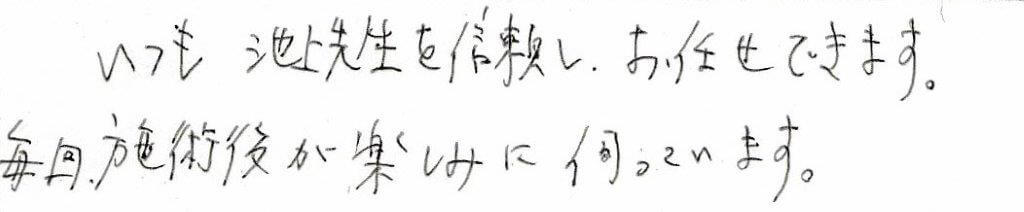 いつも 池上先生を信頼し、お任せできます。
毎回、施術後が楽しみに伺っています。